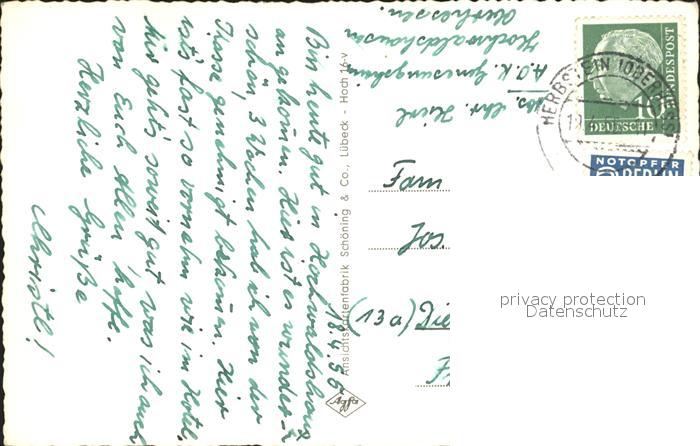 18.4.55
Bin heute gut in Hochwaldshausen
angekommen. Hier ist es wunder-
schön, 3 Wochen hab ich von der
Kasse genehmigt bekommen. Hier
ist's fast so vornehm wie im Hotel.
Mir geht's soweit gut was ich auch
von Euch Allen hoffe.
Herzliche Grüße
Christl!
Ansichtskartenfabrik Schöning & Co., Lübeck - Hoch 16-v
Agfa
Abs. Chr.
A.O.K. Genesungsheim
Hochwaldshausen
Oberhessen.
HERBSTEIN (OBERHESS
10
DEUTSCHE BUNDESPOST
NOTOPFER
2 BERLIN
Fam
Jos.
(13a) Die
privacy protection
Datenschutz